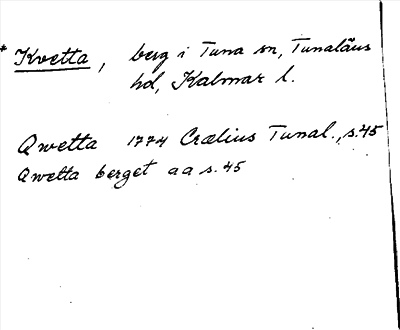 * Kvetta, berg i Tuna sn, Tunaläns
hd, Kalmar l.
Qwetta 1774 Crælius Tunal., s. 45
Qwetta berget aa s. 45